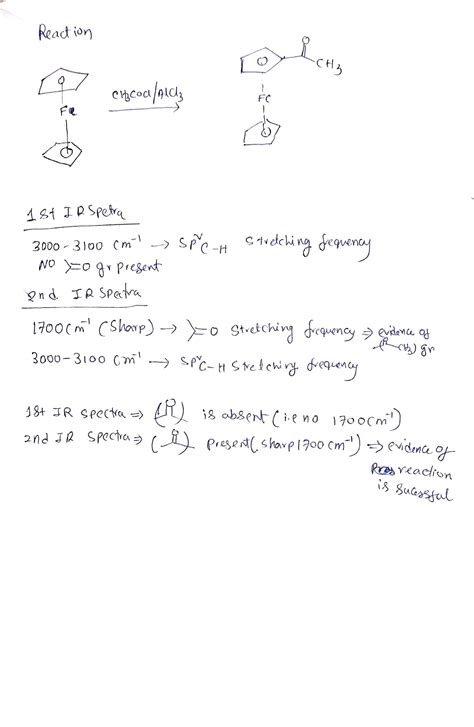 Reaction
O
CH3
Fe
CH3COCl/AlCl3
Fe
1st IR Spetra
3000-3100 cm-1 → SP2 C-H Stretching frequency
NO >=O gr present
2nd IR Spectra
1700 cm-1 (Sharp) → >=O Stretching frequency ⇒ evidence of
CH3) gr
3000-3100 cm-1 → SP2 C-H Stretching frequency
1st IR Spectra ⇒ is absent (i.e no 1700 cm-1)
2nd IR Spectra ⇒ present (sharp 1700 cm-1) ⇒ evidence of
reaction
is Sucessful